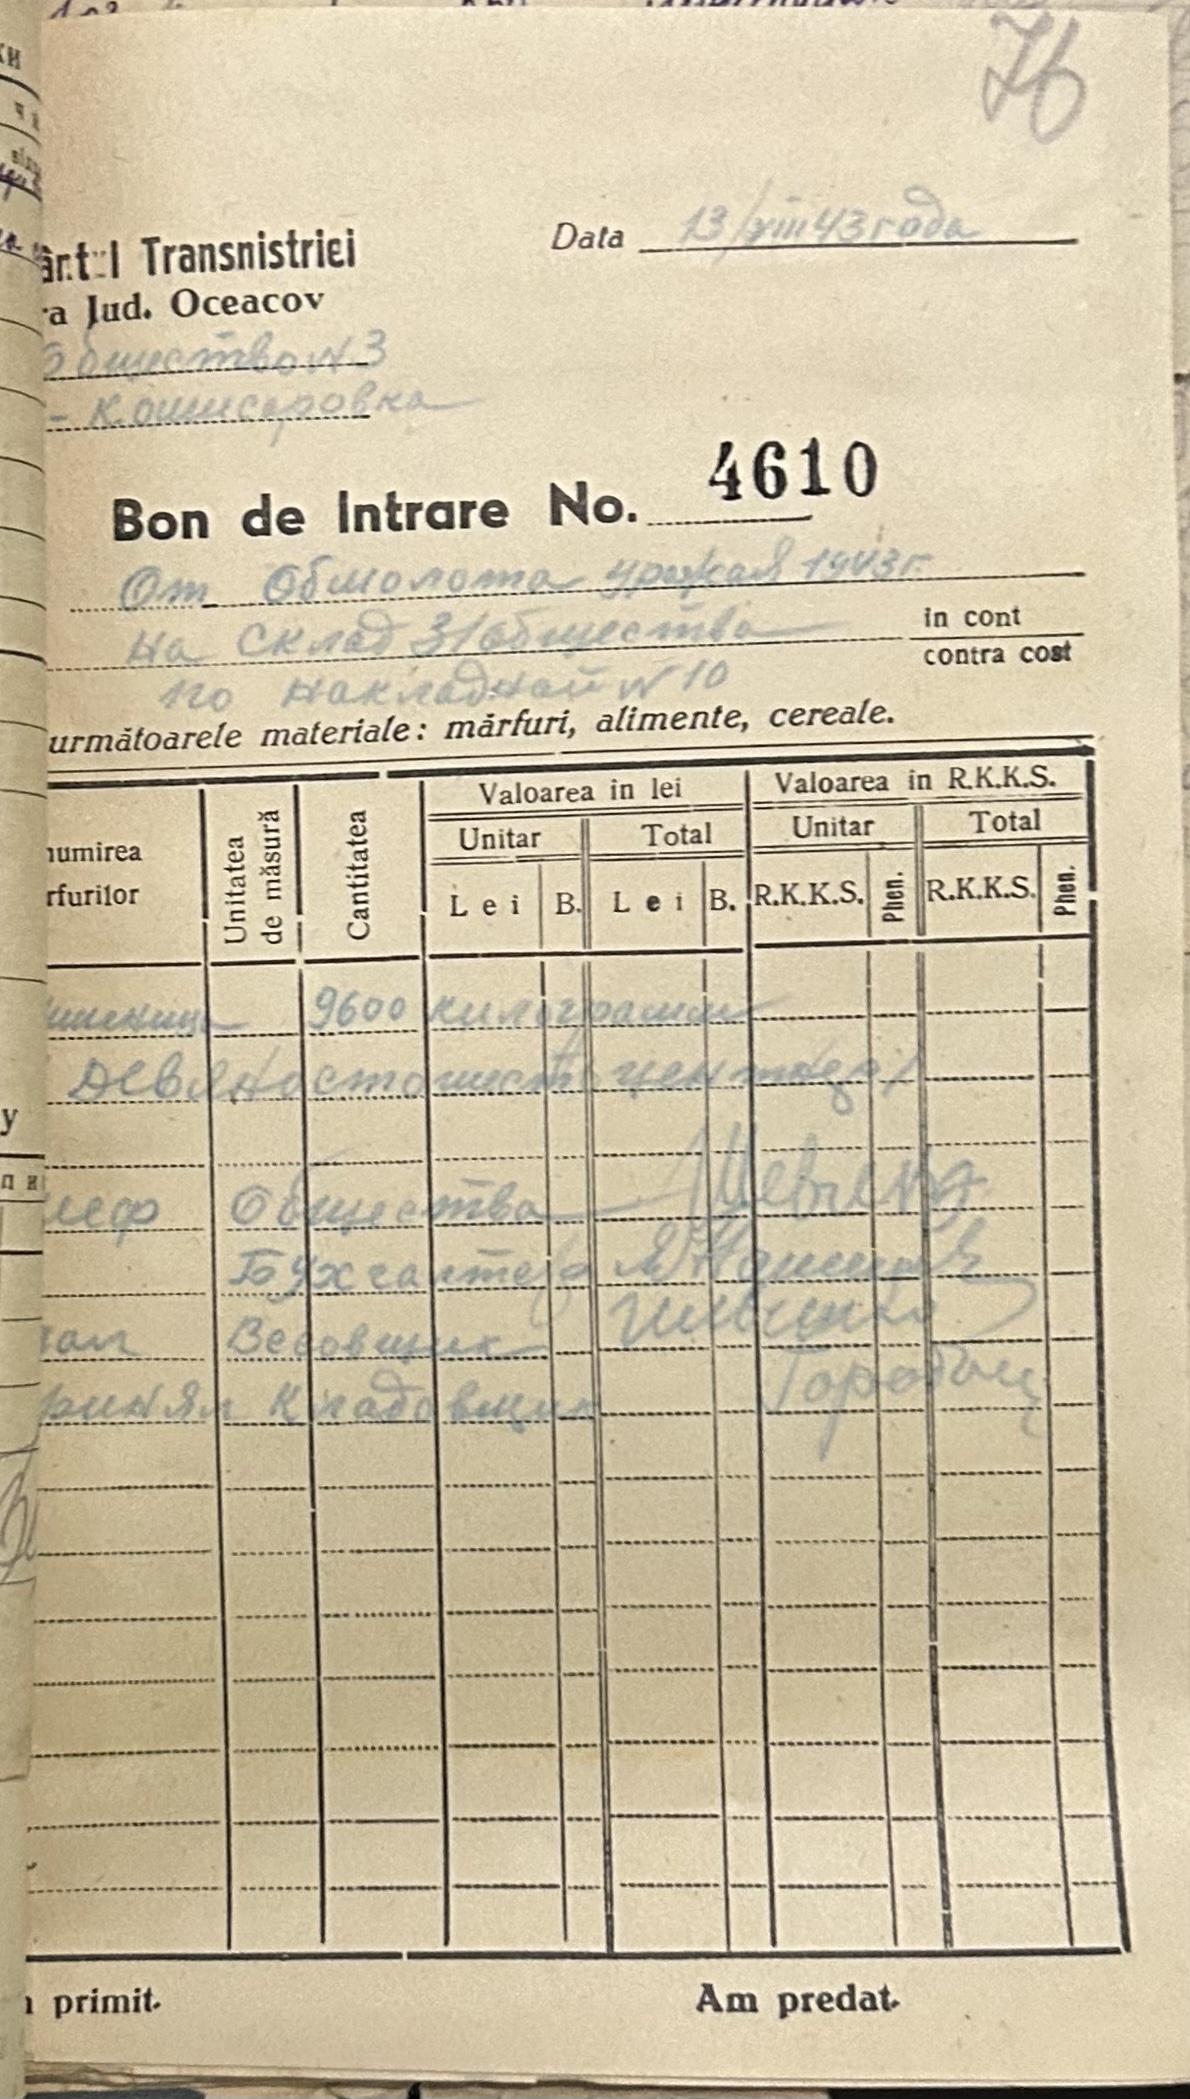 76
Data 13/VIII 43 года
Transnistriei
Jud. Oceacov
Общество N 3
Комисаровка
Bon de Intrare No. 4610
От Обмолота урожая 1943 г.
на Склад 3/общества
in cont
contra cost
по накладной N 10
următoarele materiale: mărfuri, alimente, cereale.
Valoarea in lei Valoarea in R.K.K.S.
Unitatea de măsură Cantitatea Unitar Total Unitar Total
Lei B. Lei B. R.K.K.S. Phen. R.K.K.S. Phen.
9600 килограмм
Девяносто шесть центнер/
Общества
Бухгалтер
Весовщик
Кладовщик Горобец
primit. Am predat.